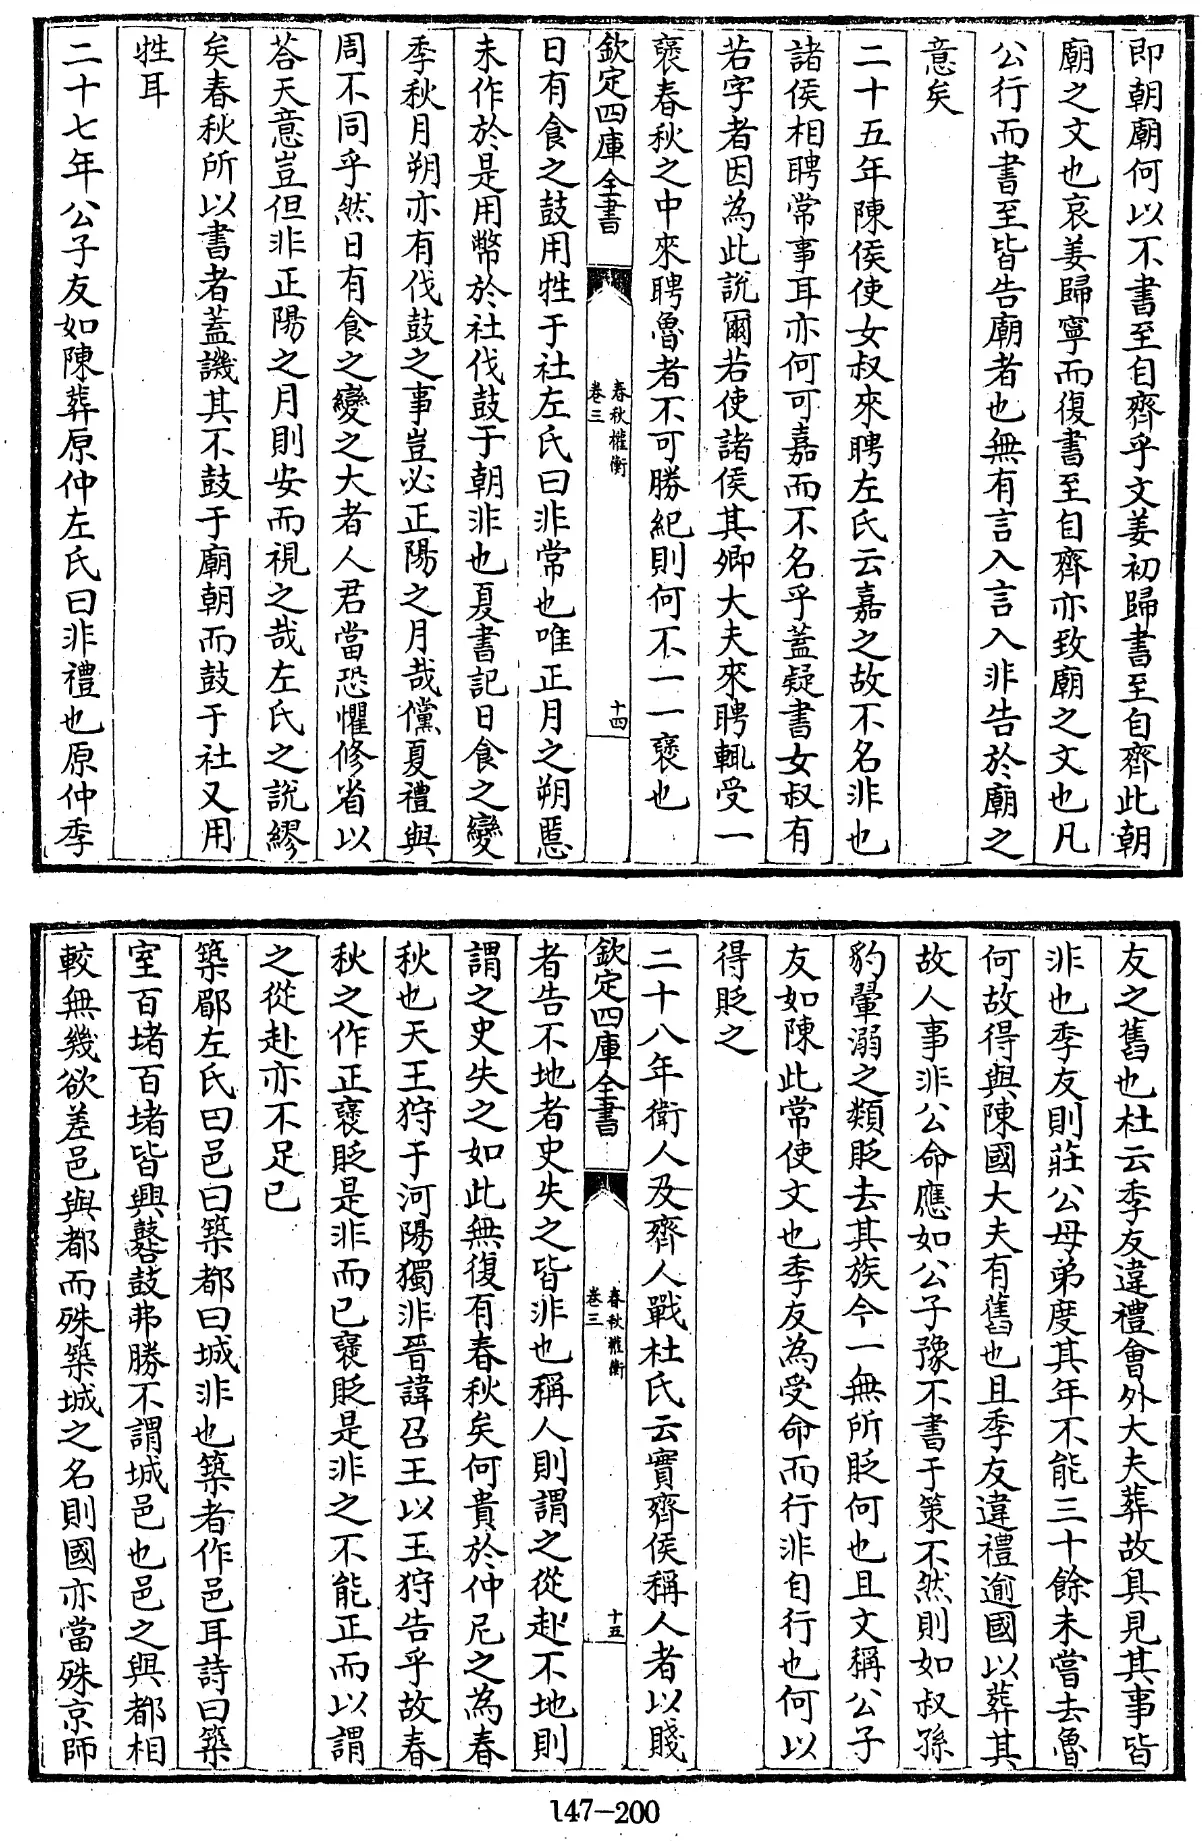 即朝廟何以不書至自齊乎文姜初歸書至自齊此朝
廟之文也哀姜歸寧而復書至自齊亦致廟之文也凡
公行而書至皆告廟者也無有言入言入非告於廟之
意矣
二十五年陳侯使女叔來聘左氏云嘉之故不名非也
諸侯相聘常事耳亦何可嘉而不名乎蓋疑書女叔有
若字者因為此説爾若使諸侯其卿大夫來聘輒受一
襃春秋之中來聘魯者不可勝紀則何不一一襃也
欽定四庫全書
春秋權衡
卷三
十四
日有食之鼓用牲于社左氏曰非常也唯正月之朔慝
未作於是用幣於社伐鼓于朝非也夏書記日食之變
季秋月朔亦有伐鼓之事豈必正陽之月哉儻夏禮與
周不同乎然日有食之變之大者人君當恐懼修省以
荅天意豈但非正陽之月則安而視之哉左氏之説繆
矣春秋所以書者蓋譏其不鼓于廟朝而鼓于社又用
牲耳
二十七年公子友如陳葬原仲左氏曰非禮也原仲季
友之舊也杜云季友違禮會外大夫葬故具見其事皆
非也季友則莊公母弟度其年不能三十餘未嘗去魯
何故得與陳國大夫有舊也且季友違禮逾國以葬其
故人事非公命應如公子豫不書于策不然則如叔孫
豹翬溺之類貶去其族今一無所貶何也且文稱公子
友如陳此常使文也季友為受命而行非自行也何以
得貶之
二十八年衛人及齊人戰杜氏云實齊侯稱人者以賤
欽定四庫全書
春秋權衡
卷三
十五
者告不地者史失之皆非也稱人則謂之從赴不地則
謂之史失之如此無復有春秋矣何貴於仲尼之為春
秋也天王狩于河陽獨非晉諱召王以王狩告乎故春
秋之作正襃貶是非而已襃貶是非之不能正而以謂
之從赴亦不足已
築郿左氏曰邑曰築都曰城非也築者作邑耳詩曰築
室百堵百堵皆興鼛鼓弗勝不謂城邑也邑之與都相
較無幾欲差邑與都而殊築城之名則國亦當殊京師
147-200